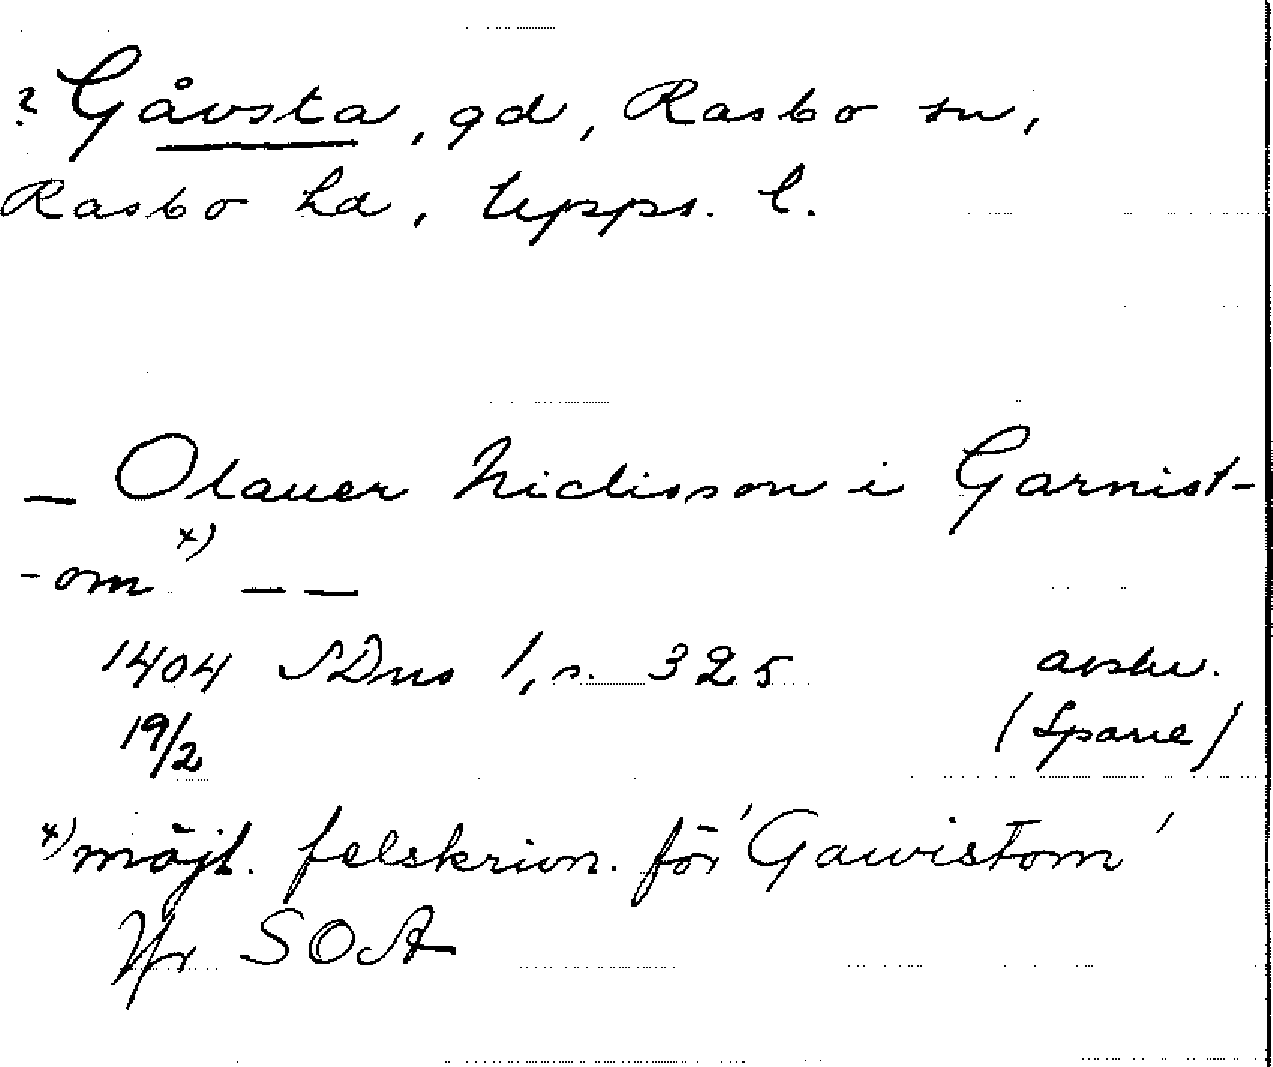 ? Gåvsta, gd, Rasbo sn,
Rasbo hd, Upps. l.
— Olauer Niclisson i Garnist-
-om x) — —
1404 SDns 1, s. 325 avskr.
19/2 (Sparre)
x) möjl. felskrivn. för 'Gawistom'
Jfr SOA